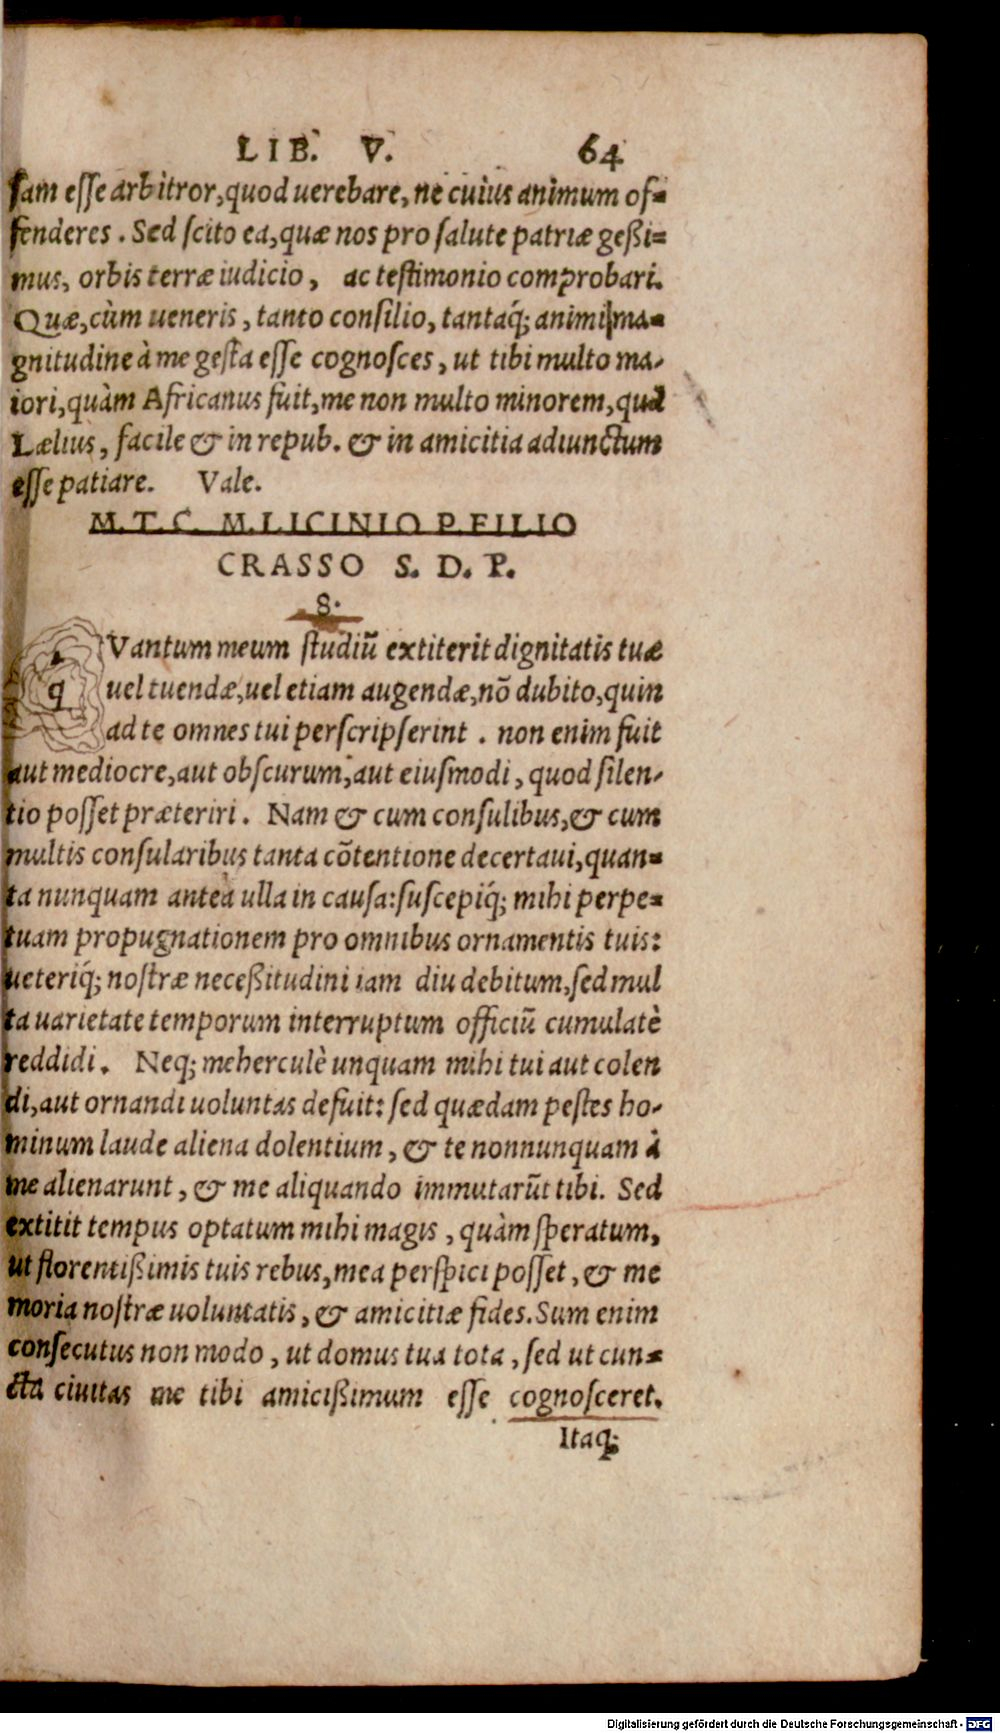 LIB. V. 64
sam esse arbitror, quod uerebare, ne cuius animum of-
fenderes. Sed scito ea, quæ nos pro salute patriæ geßi-
mus, orbis terræ iudicio, ac testimonio comprobari.
Quæ, cùm ueneris, tanto consilio, tantaq́; animi ma-
gnitudine à me gesta esse cognosces, ut tibi multo ma-
iori, quàm Africanus fuit, me non multo minorem, quã
Lælius, facile & in repub. & in amicitia adiunctum
esse patiare. Vale.
M. T. C. M. LICINIO P. FILIO
CRASSO S. D. P.
8.
qVantum meum studiũ extiterit dignitatis tuæ
uel tuendæ, uel etiam augendæ, nõ dubito, quin
ad te omnes tui perscripserint. non enim fuit
aut mediocre, aut obscurum, aut eiusmodi, quod silen-
tio posset præteriri. Nam & cum consulibus, & cum
multis consularibus tanta cõtentione decertaui, quan-
ta nunquam antea ulla in causa: suscepiq́; mihi perpe-
tuam propugnationem pro omnibus ornamentis tuis:
ueteriq́; nostræ neceßitudini iam diu debitum, sed mul
ta uarietate temporum interruptum officiũ cumulatè
reddidi. Neq; meherculè unquam mihi tui aut colen
di, aut ornandi uoluntas defuit: sed quædam pestes ho-
minum laude aliena dolentium, & te nonnunquam à
me alienarunt, & me aliquando immutarũt tibi. Sed
extitit tempus optatum mihi magis, quàm speratum,
ut florentißimis tuis rebus, mea perspici posset, & me
moria nostræ uoluntatis, & amicitiæ fides. Sum enim
consecutus non modo, ut domus tua tota, sed ut cun-
cta ciuitas me tibi amicißimum esse cognosceret.
Itaq;
Digitalisierung gefördert durch die Deutsche Forschungsgemeinschaft - DFG